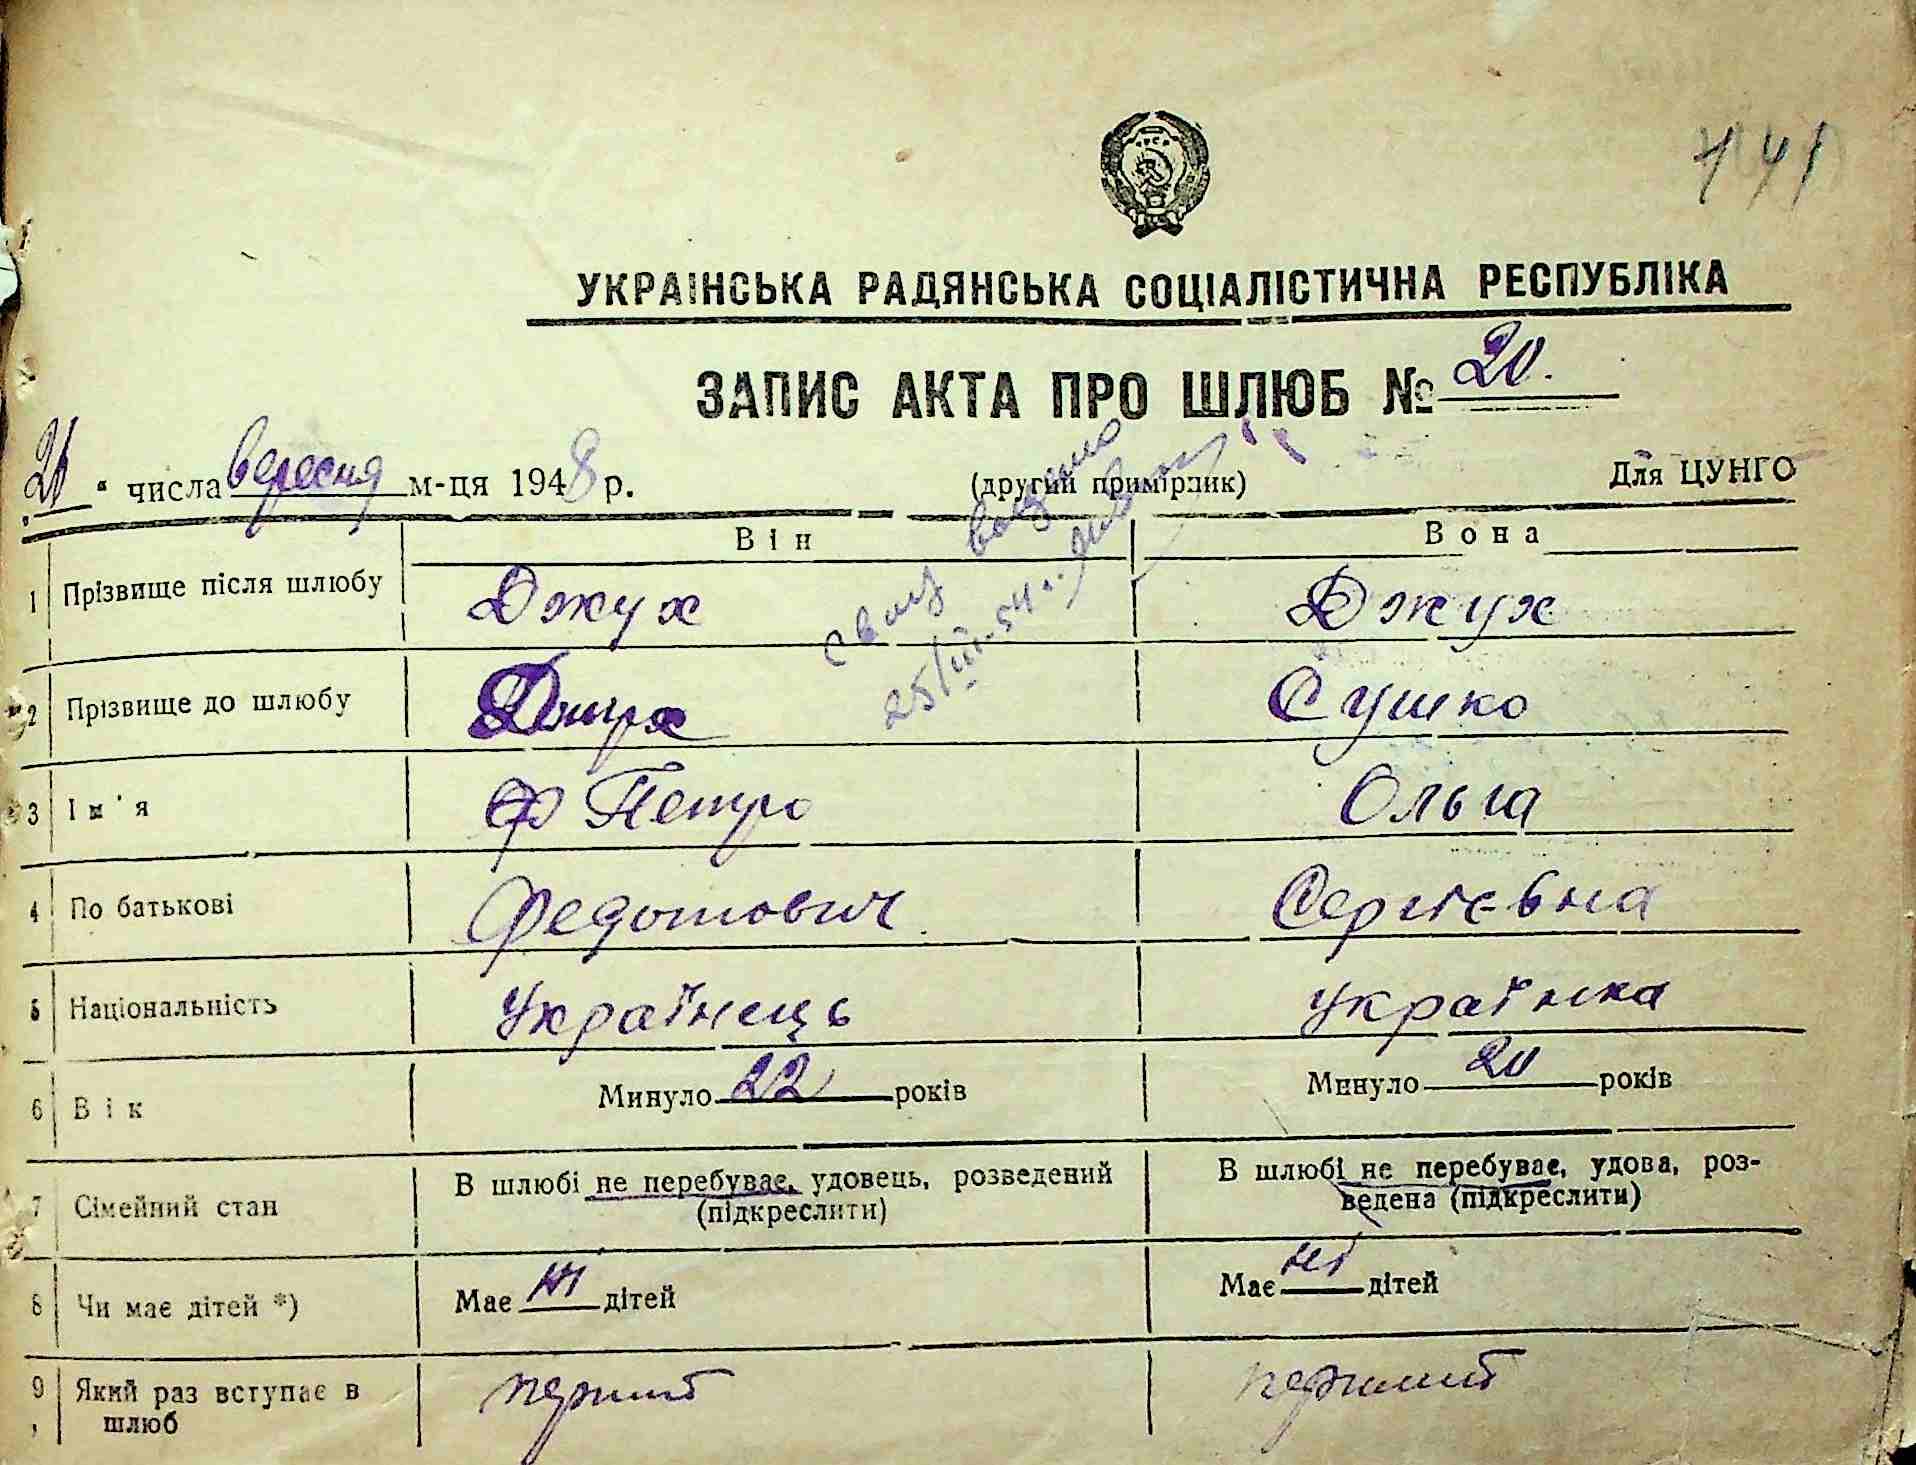 141
УКРАЇНСЬКА РАДЯНСЬКА СОЦІАЛІСТИЧНА РЕСПУБЛІКА
ЗАПИС АКТА ПРО ШЛЮБ № 20.
21 " числа вересня м-ця 1948 р. (другий примірник) Для ЦУНГО
Він Вона
1 Прізвище після шлюбу Джух Джух
25/III-54 г.
2 Прізвище до шлюбу Джух Сушко
3 Ім'я Ф Петро Ольга
4 По батькові Федотович Сергієвна
5 Національність Українець Українка
6 Вік Минуло 22 років Минуло 20 років
7 Сімейний стан В шлюбі не перебуває, удовець, розведений (підкреслити) В шлюбі не перебуває, удова, роз-
ведена (підкреслити)
8 Чи має дітей *) Має ні дітей Має ні дітей
9 Який раз вступає в шлюб перший перший